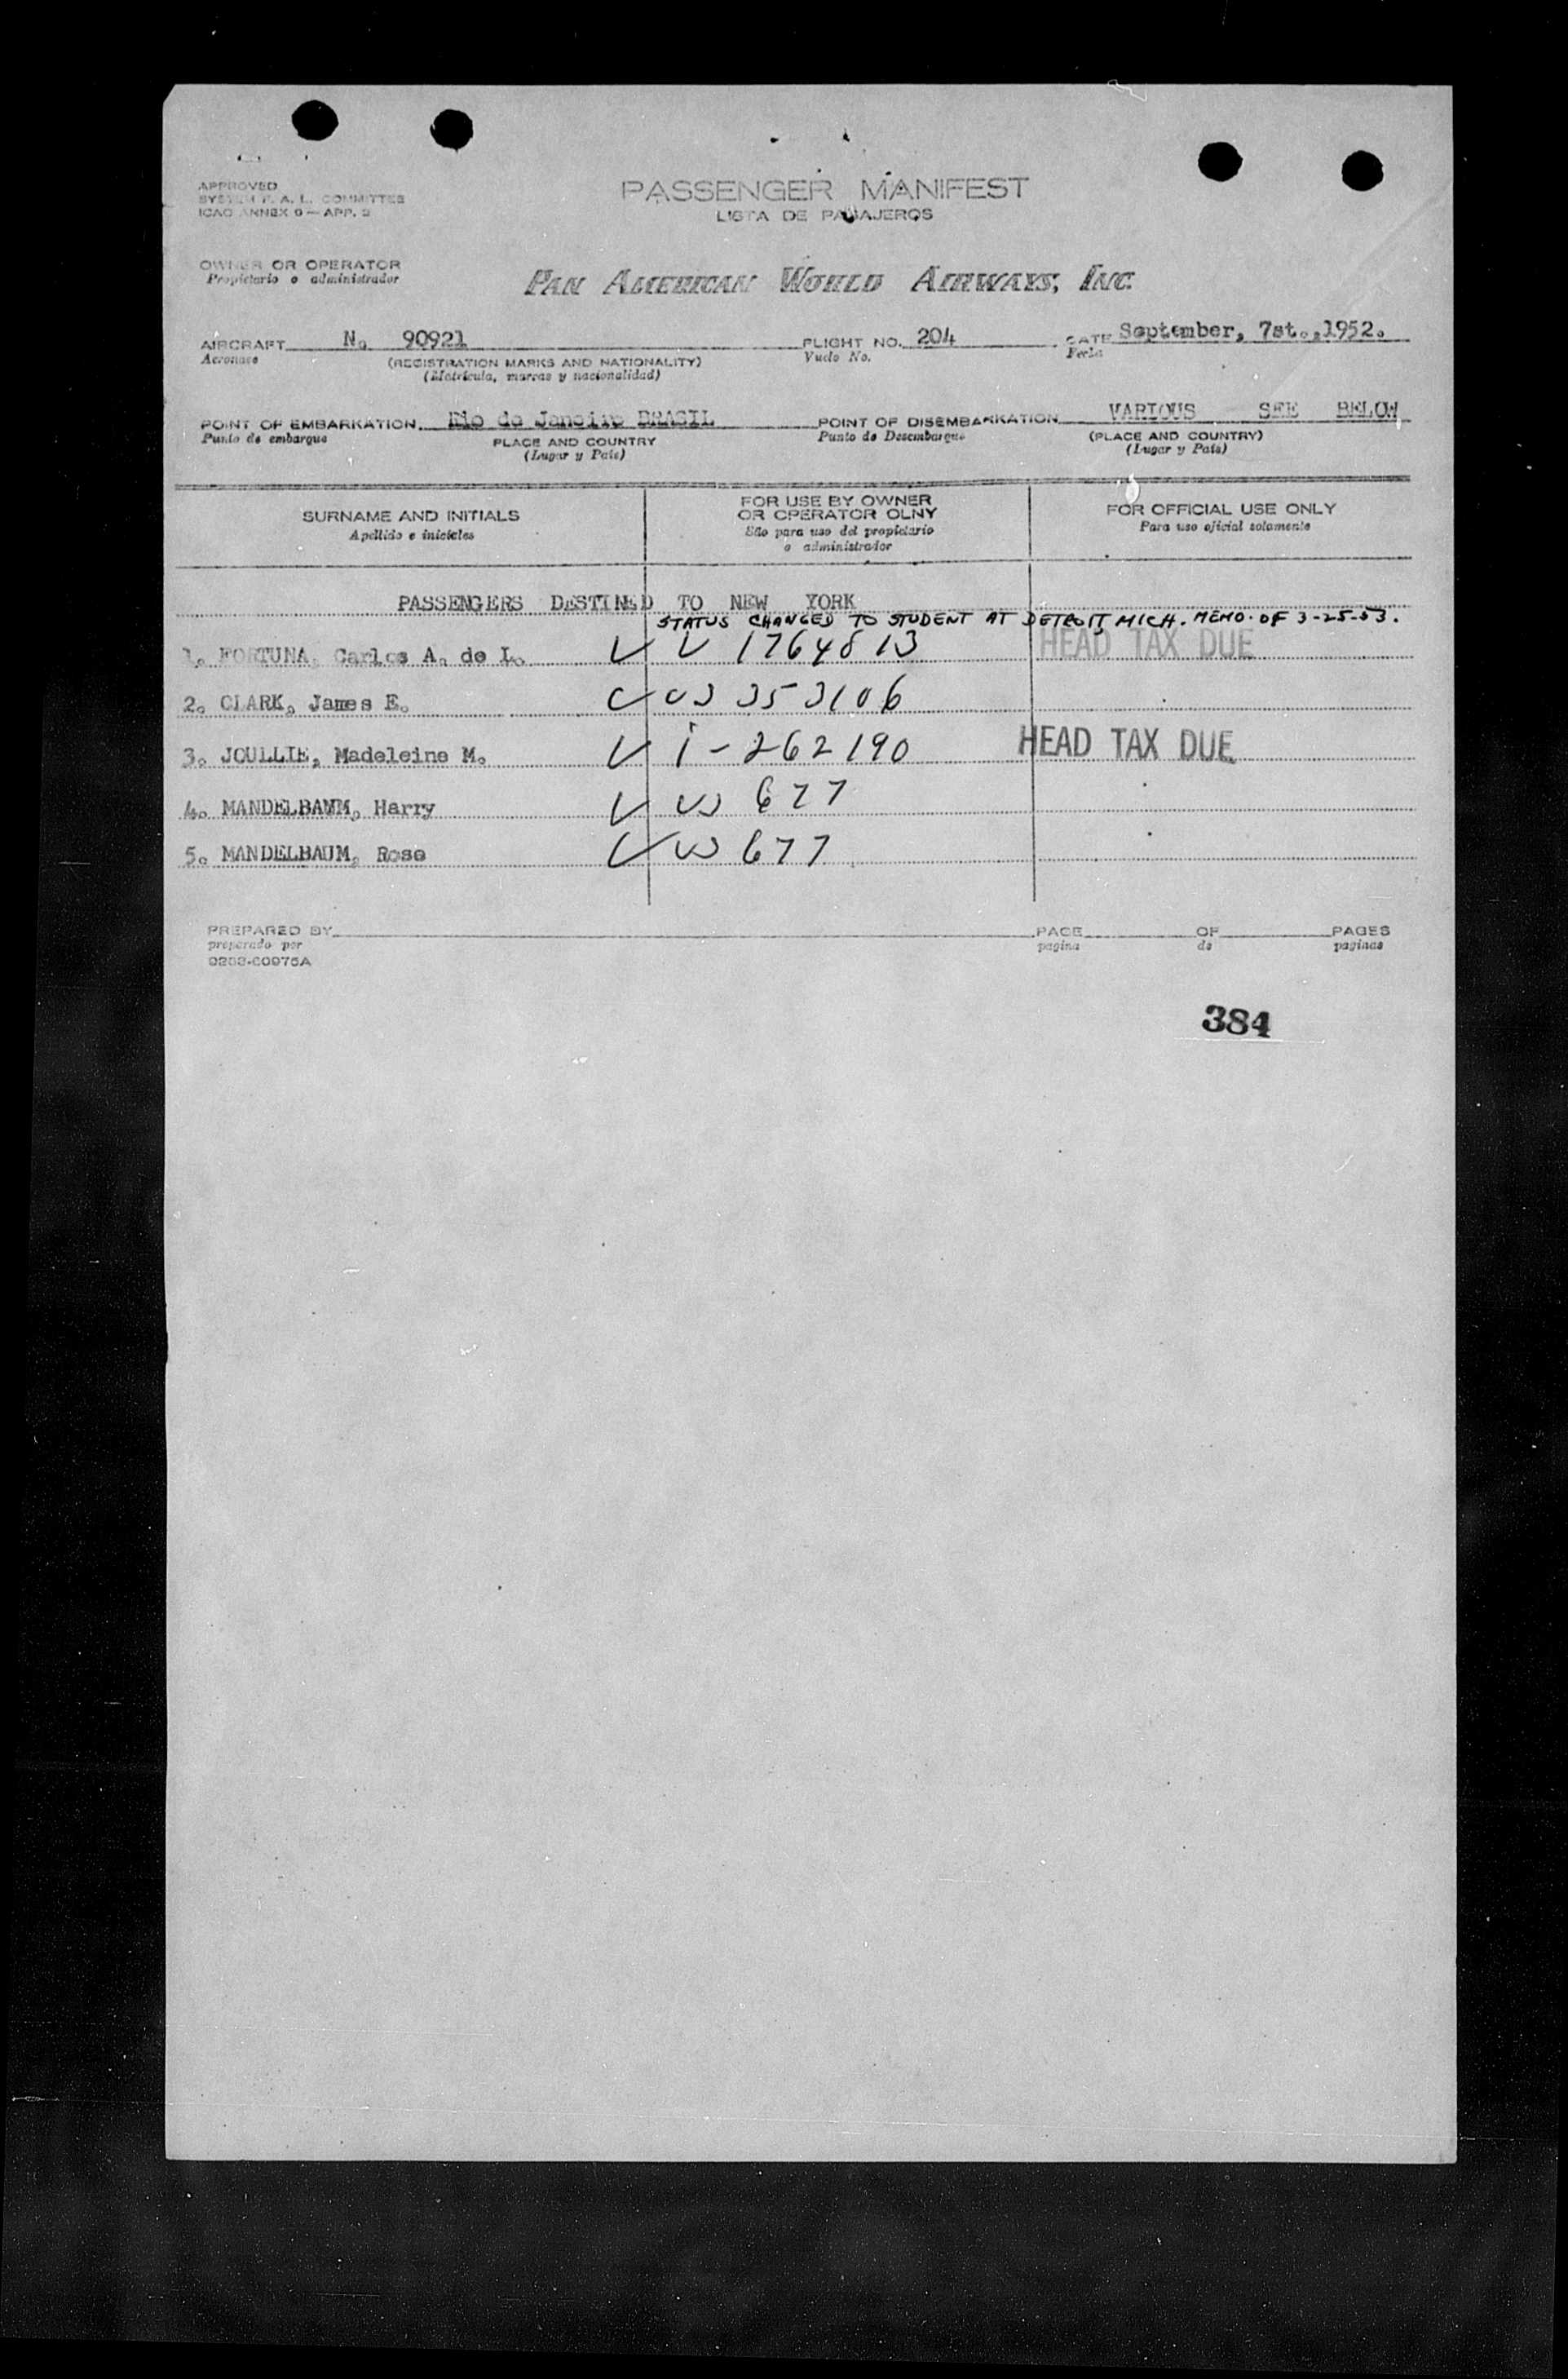 APPROVED
SYSTEM F. A. L. COMMITTEE
ICAO ANNEX 9 — APP. 2
PASSENGER MANIFEST
LISTA DE PASAJEROS
OWNER OR OPERATOR
Propietario o administrador
PAN AMERICAN WORLD AIRWAYS, INC.
AIRCRAFT No 90921 FLIGHT NO. 204 DATE September, 7st.,1952.
Aeronave (REGISTRATION MARKS AND NATIONALITY) Vuelo No. Fecha
(Matrícula, marcas y nacionalidad)
POINT OF EMBARKATION Rio de Janeiro BRASIL POINT OF DISEMBARKATION VARIOUS SEE BELOW
Punto de embarque PLACE AND COUNTRY Punto de Desembarque (PLACE AND COUNTRY)
(Lugar y País) (Lugar y País)
SURNAME AND INITIALS
Apellido e iniciales
FOR USE BY OWNER
OR OPERATOR OLNY
São para uso del propietario
o administrador
FOR OFFICIAL USE ONLY
Para uso oficial solamente
PASSENGERS DESTINED TO NEW YORK
STATUS CHANGED TO STUDENT AT DETROIT, MICH. MEMO. OF 3-25-53.
1. FORTUNA, Carlos A. de L. V 1764813 HEAD TAX DUE
2. CLARK, James E. US 353106
3. JOULLIE, Madeleine M. i-262190 HEAD TAX DUE
4. MANDELBAUM, Harry US 677
5. MANDELBAUM, Rose US 677
PREPARED BY PAGE OF PAGES
preparado por pagina de paginas
384